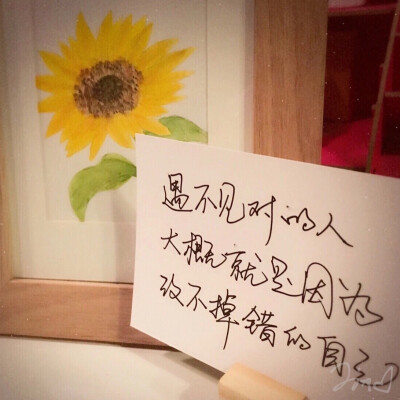 遇不见对的人
大概就是因为
改不掉错的自己